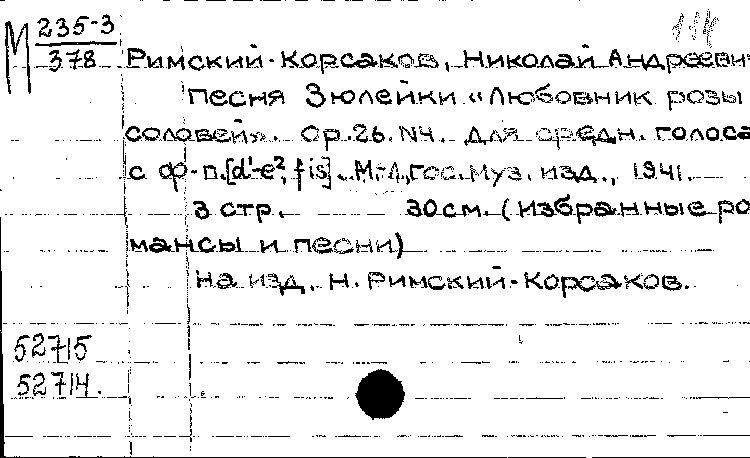 114
М 235-3
378
Римский-Корсаков, Николай Андрееви
Песня Зюлейки «Любовник розы
соловей». Op.26. N4. Для средн. голоса
с ф-п. [d¹-e², fis]. М.-Л., Гос. муз. изд., 1941.
3 стр. 30 см. (Избранные ро
мансы и песни)
На изд. Н. Римский-Корсаков.
52715
52714.